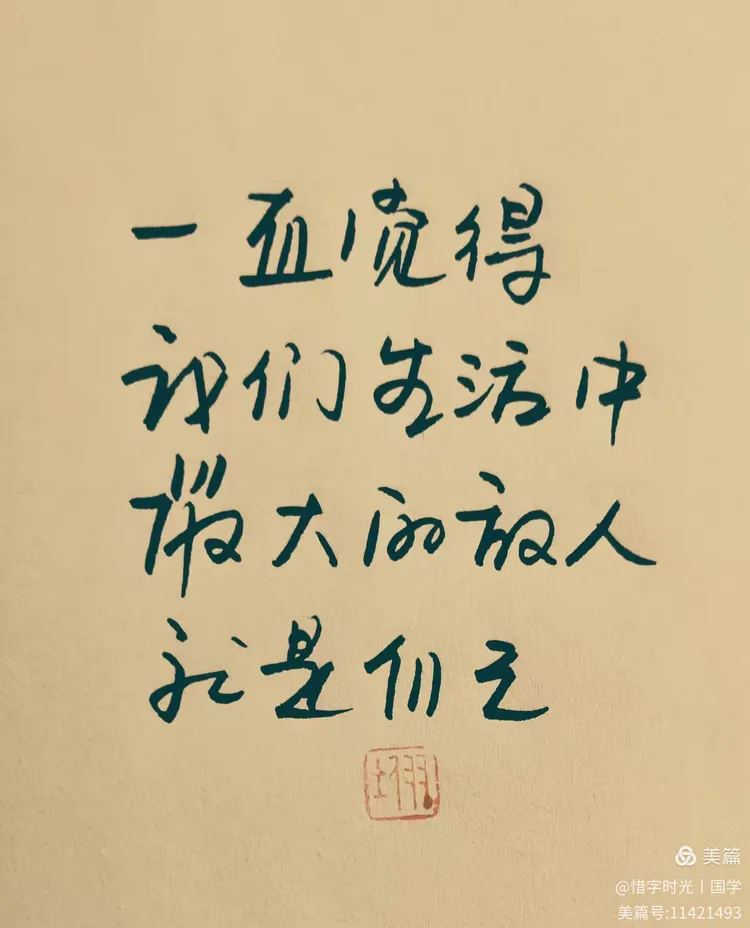 一直觉得
我们生活中
最大的敌人
就是
美篇
@惜字时光丨国学
美篇号:11421493